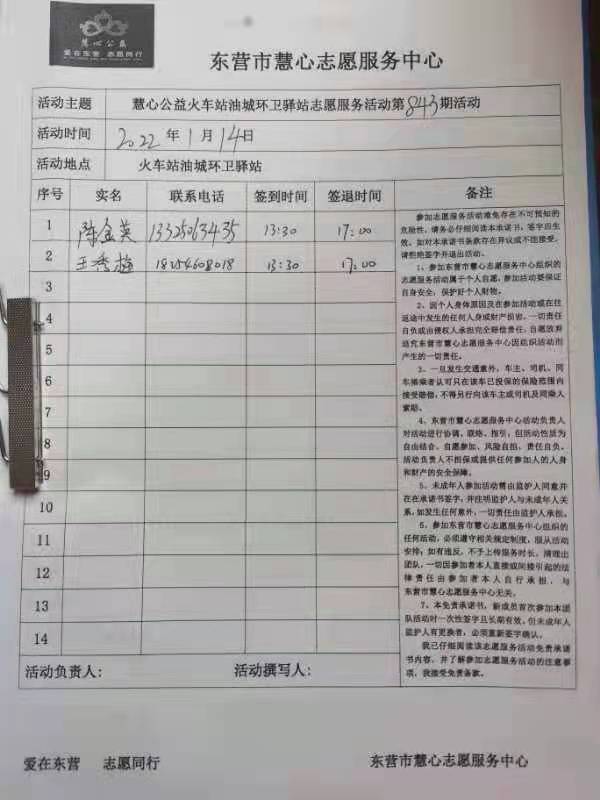 慧心公益
爱在东营 志愿同行
东营市慧心志愿服务中心
活动主题 慧心公益火车站油城环卫驿站志愿服务活动第843期活动
活动时间 2022年1月14日
活动地点 火车站油城环卫驿站
序号 实名 联系电话 签到时间 签退时间 备注
1 陈金英 13325063435 13:30 17:00
2 王秀梅 18254608018 13:30 17:00
3
4
5
6
7
8
9
10
11
12
13
14
参加志愿服务活动难免存在不可预知的
危险性，请务必仔细阅读本承诺书，签字后生
效。如对本承诺书条款存在异议或不能接受，
请拒绝签字并退出活动。
1、参加东营市慧心志愿服务中心组织的
志愿活动属于个人自愿，参加活动要保证
自身安全，保护好个人财物。
2、因个人身体原因及在参加活动或在往
返途中发生的任何人身或财产损害，一切责任
自负或由侵权人承担完全赔偿责任，自愿放弃
追究东营市慧心志愿服务中心因组织活动而
产生的一切责任。
3、一旦发生交通意外，车主、司机、同
车搭乘者认可只在该车已投保的保险范围内
接受赔偿，不得另行向该车主或司机及同乘人
索赔。
4、东营市慧心志愿服务中心活动负责人
对活动进行协调、联络、指引，但活动性质为
自由结合、自愿参加、风险自担、责任自负。
活动负责人不担保或提供任何参加人的人身
和财产的安全保障。
5、未成年人参加活动需由监护人同意并
在在承诺书签字，并注明监护人与未成年人关
系，如发生任何意外，一切责任由监护人承担。
6、参加东营市慧心志愿服务中心组织的
任何活动，必须遵守相关规定制度，服从活动
安排；如有违反，不予上传服务时长，清理出
团队，一切因参加者本人直接或间接引起的法
律责任由参加者本人自行承担，与
东营市慧心志愿服务中心无关。
7、本免责承诺书，新成员首次参加本团
队活动时一次性签字且长期有效，但未成年人
监护人有更换者，必须重新签字确认。
我已仔细阅读该志愿服务活动免责承诺
书内容，并了解参加志愿服务活动的注意事
项，我接受免责条款。
活动负责人： 活动撰写人：
爱在东营 志愿同行 东营市慧心志愿服务中心